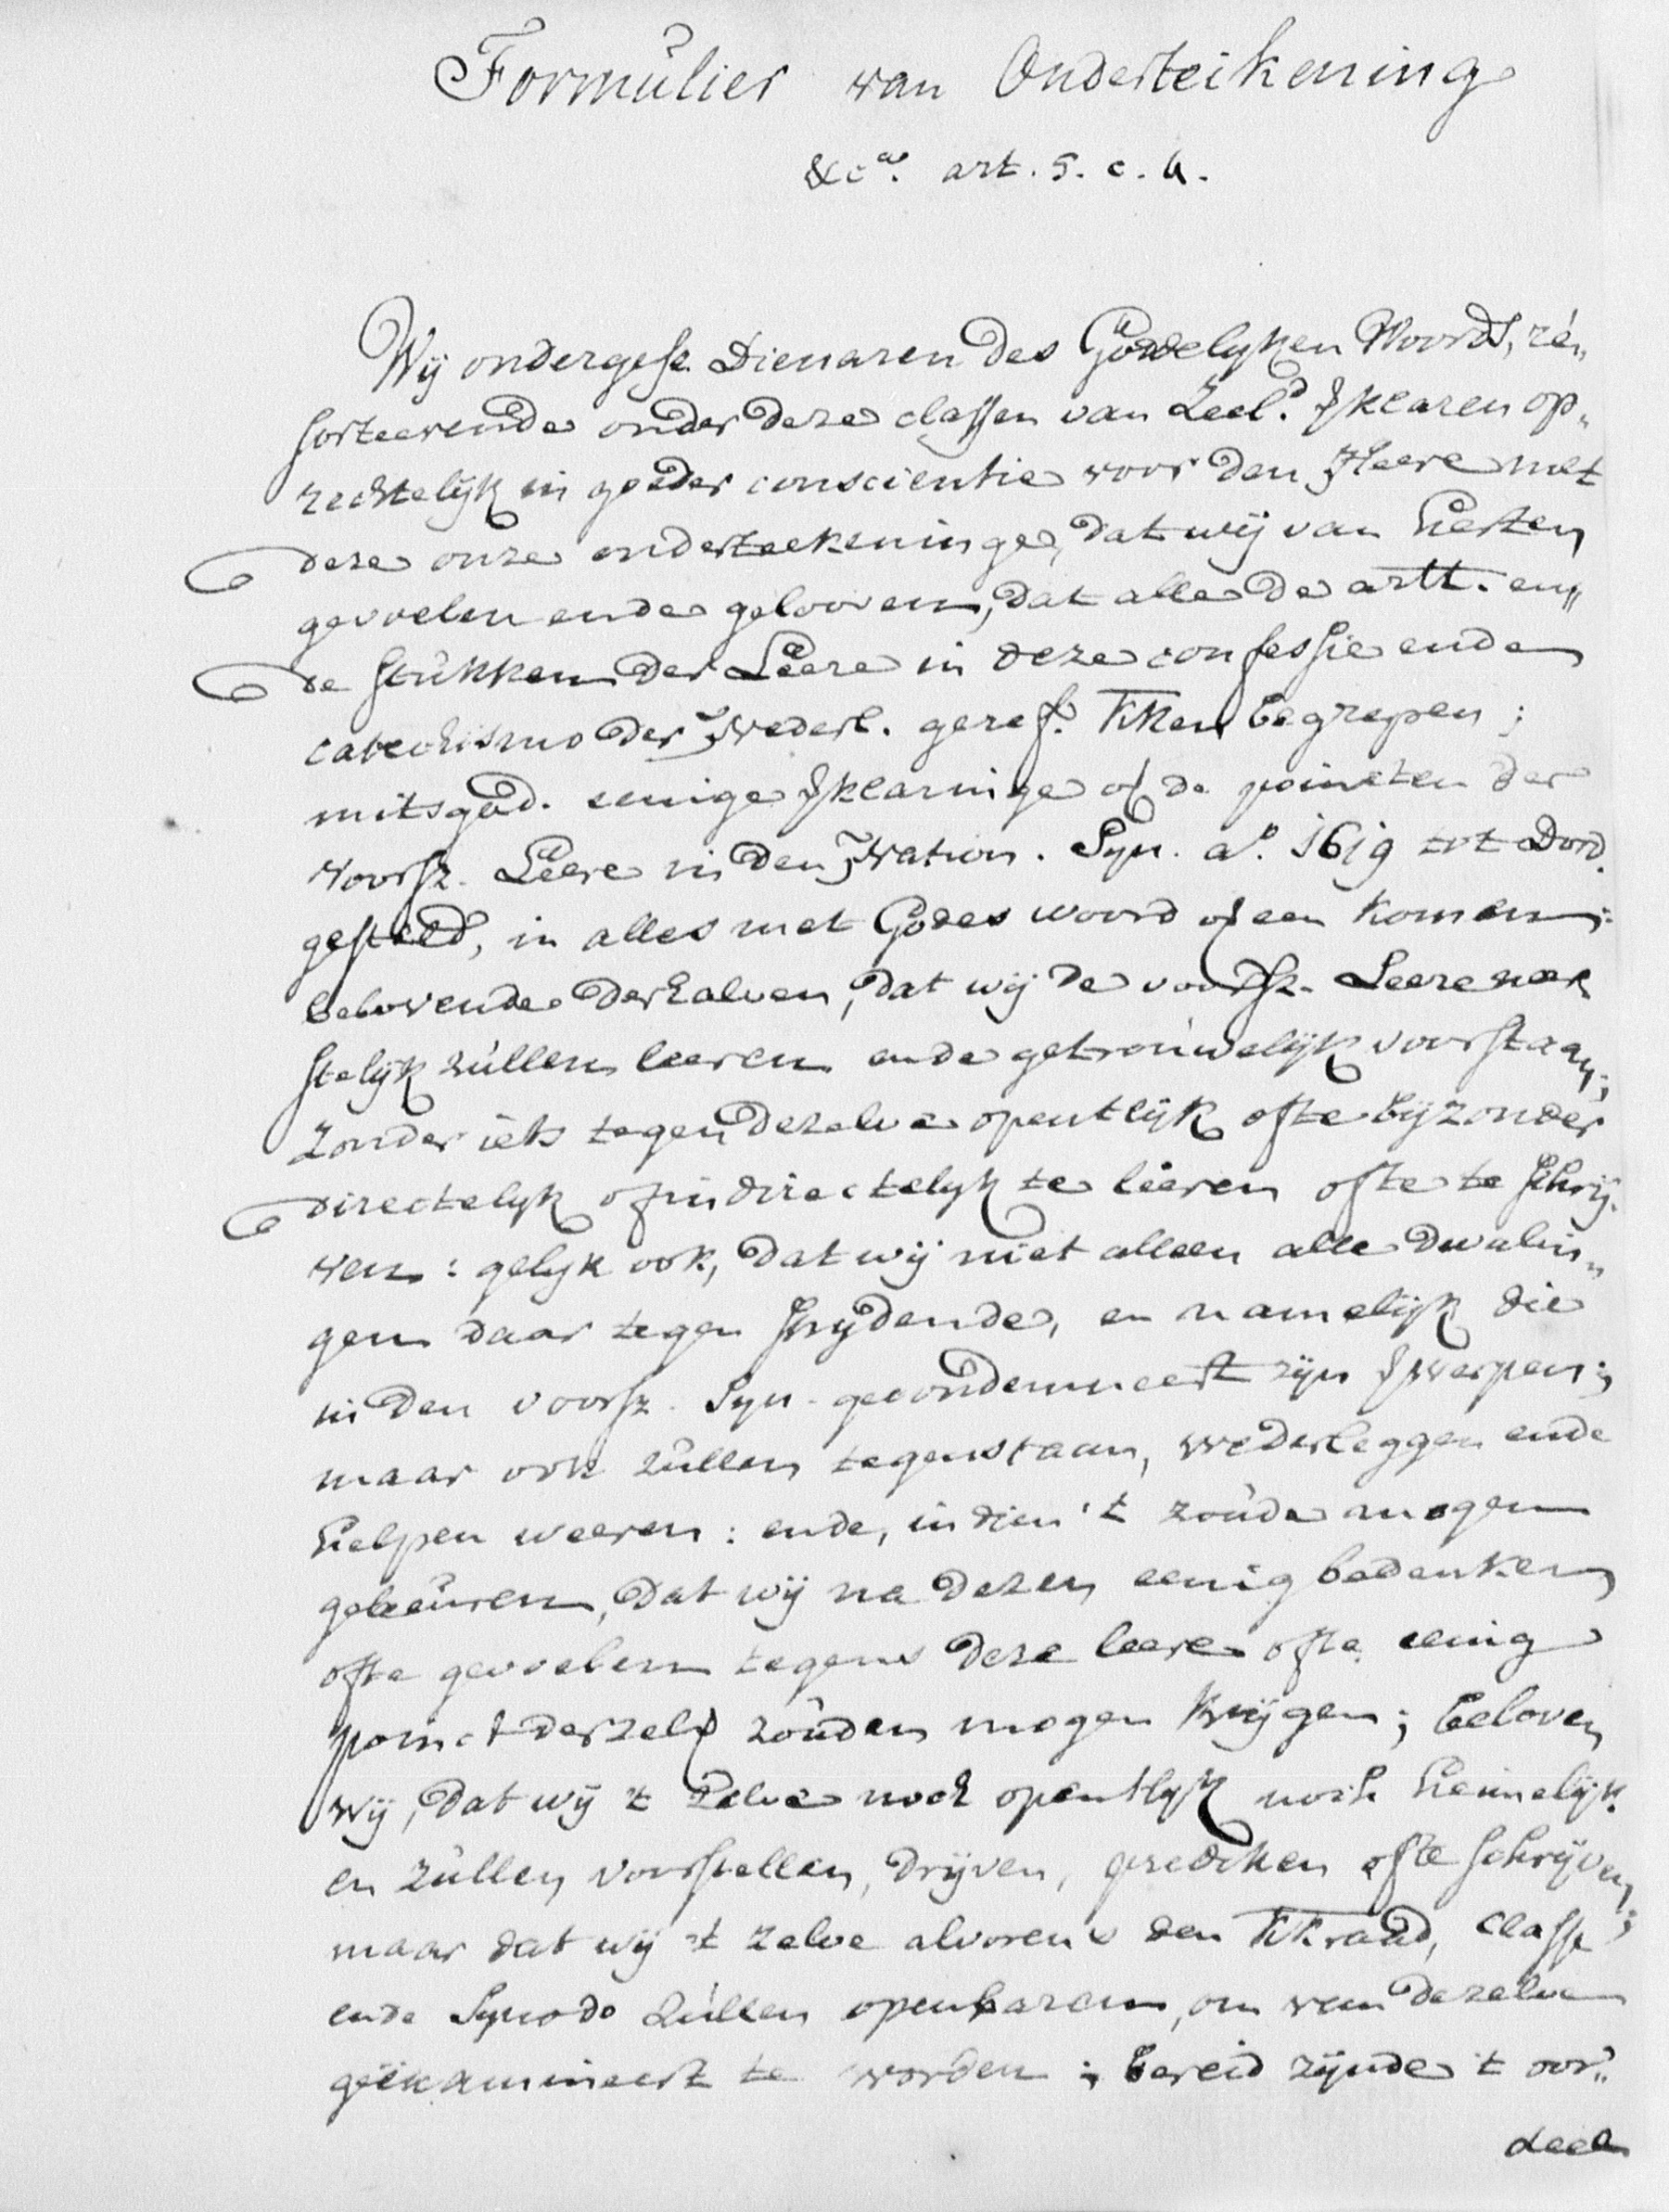 Formulier van Onderteikening
&ca. art. 5. c. 4.
Wij ondergesz. Dienaren des Goddelyken Woords, re„
sorteerende onder deze classen van Zeel.d ꝟklaren op„
rechtelijk in goeder conscientie voor den Heere met
deze onze onderteekeninge, dat wij van herten
gevoelen ende geloven, dat alle de artt. en„
de stukken der Leere in deze confessie ende
catechismo der Nederl. geref. KKen begrepen;
mitsgad. eenige ꝟklaringe of de poincten der
voorsz. Leere in den Nation. Syn. ao. 1619 tot Dord.
gesteld, in alles met Godes woord of een komen:
belovende derhalven, dat wij de voorsz. Leere neer
stelijk zullen leeren ende getrouwelijk voorstaan;
zonder iets tegen dezelve opentlijk ofte bijzonder
directelyk of indirectelyk te leeren ofte te schrij„
ven: gelyk ook, dat wij niet alleen alle dwalin„
gen daar tegen strijdende, en namelijk die
in den voorsz. Syn. gecondemneert zijn ꝟwerpen;
maar ook zullen tegenstaan, wederleggen ende
helpen weeren: ende, indien 't zoude mogen
gebeuren, dat wij na dezen eenig bedenken
ofte gevoelen tegens deze leere ofte eenig
poinct derzelve zouden mogen krijgen; beloven
wij, dat wij 't zelve noch opentlyk noch heimelijk
en zullen voorstellen, drijven, prediken ofte schrijven;
maar dat wij 't zelve alvorens den KKraad, classe
ende Synodo zullen openbaren, om van dezelve
geëxamineert te worden; bereid zijnde 't oor„
deel